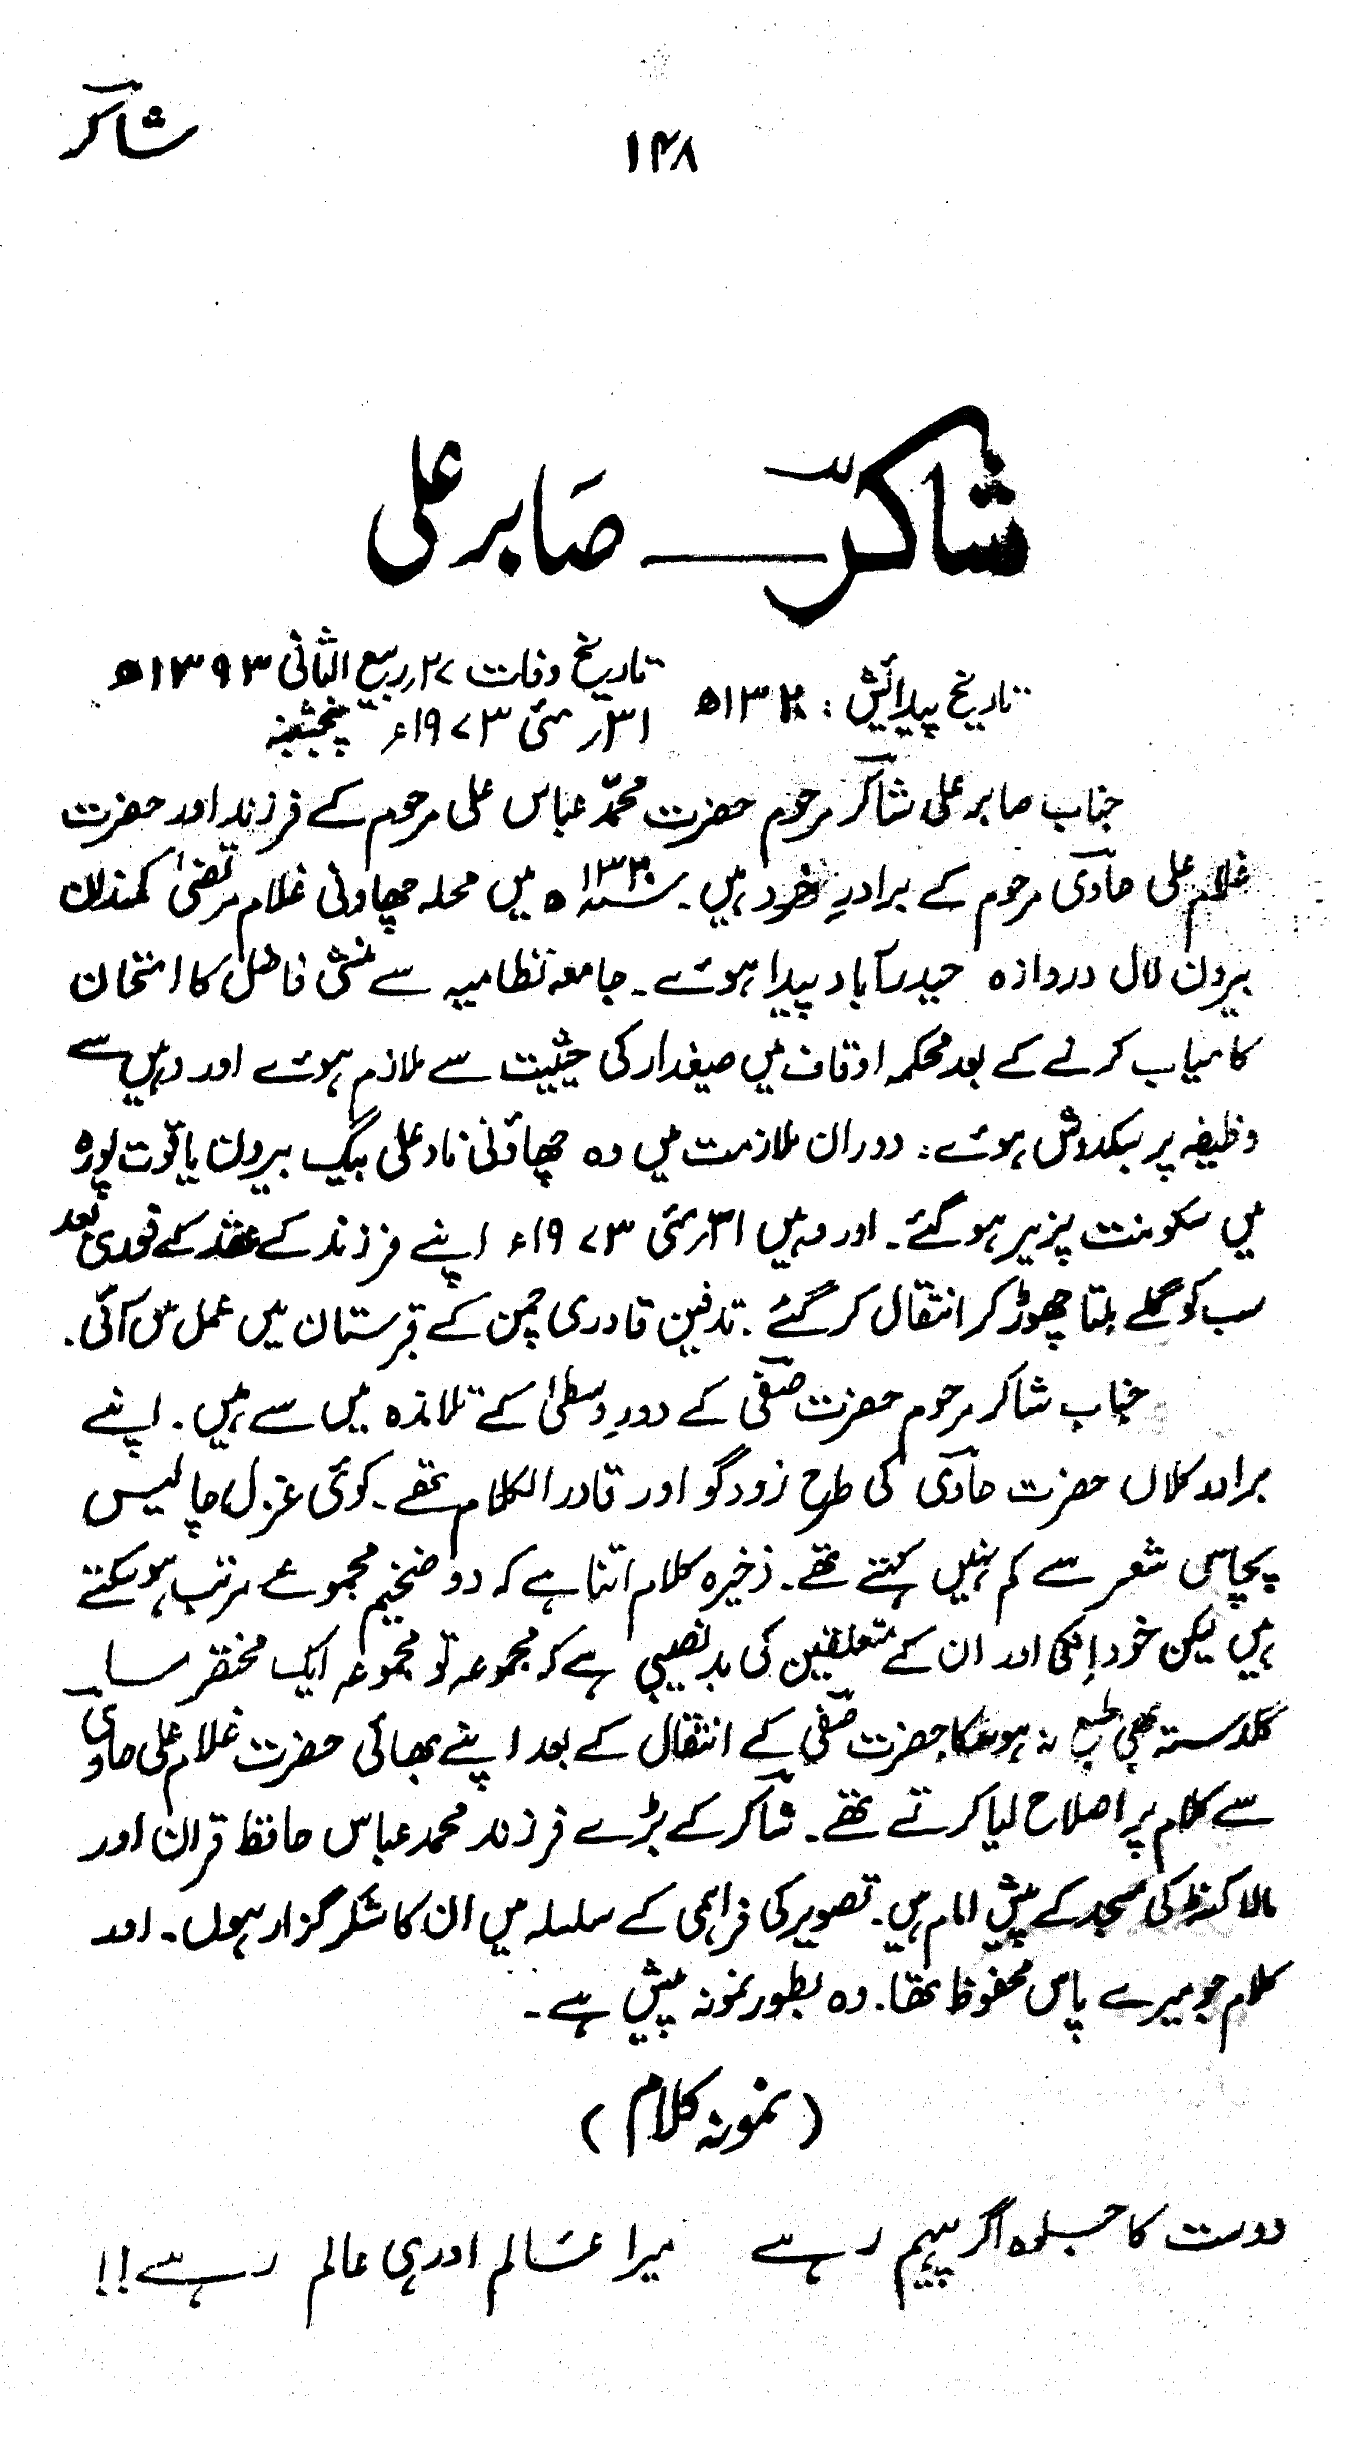 شاکر
۱۴۸
شاکر ــــ صابر علی
تاریخ پیدائش : ۱۳۲۰ھ
تاریخ وفات ۲۷ ربیع الثانی ۱۳۹۳ھ
۳۱ر مئی ۱۹۷۳ء پنجشنبہ
جناب صابر علی شاکر مرحوم حضرت محمد عباس علی مرحوم کے فرزند اور حضرت
غلام علی حاوی مرحوم کے برادرِ خرد ہیں۔ ۱۳۲۰ھ میں محلہ چھاونی غلام مرتضیٰ کمندان
بیرون لال دروازہ حیدرآباد پیدا ہوئے۔ جامعہ نظامیہ سے منشی فاضل کا امتحان
کامیاب کرنے کے بعد محکمہ اوقاف میں صیغدار کی حیثیت سے ملازم ہوئے اور وہیں سے
وظیفہ پر سبکدوش ہوئے۔ دوران ملازمت میں وہ چھاؤنی ناد علی بیگ بیرون یاقوت پورہ
میں سکونت پزیر ہوگئے۔ اور وہیں ۳۱ر مئی ۱۹۷۳ء اپنے فرزند کے عقد کے فوری بعد
سب کو گلے ملتا چھوڑ کر انتقال کر گئے۔ تدفین قادری چمن کے قبرستان میں عمل میں آئی۔
جناب شاکر مرحوم حضرت صفی کے دورِ وسطیٰ کے تلامذہ میں سے ہیں۔ اپنے
برادر کلاں حضرت حاوی کی طرح زودگو اور قادر الکلام تھے۔ کوئی غزل چالیس
پچاس شعر سے کم نہیں کہتے تھے۔ ذخیرہ کلام اتنا ہے کہ دو ضخیم مجموعے مرتب ہوسکتے
ہیں لیکن خود انکی اور ان کے متعلقین کی بدنصیبی ہے کہ مجموعہ تو مجموعہ ایک مختصر سا
گلدستہ بھی طبع نہ ہوسکا۔ حضرت صفی کے انتقال کے بعد اپنے بھائی حضرت غلام علی حاوی
سے کلام پر اصلاح لیا کرتے تھے۔ شاکر کے بڑے فرزند محمد عباس حافظ قران اور
مالاکنٹہ کی مسجد کے پیش امام ہیں۔ تصویر کی فراہمی کے سلسلہ میں ان کا شکر گزار ہوں۔ اور
کلام جو میرے پاس محفوظ تھا۔ وہ بطور نمونہ پیش ہے۔
(نمونہ کلام)
دوست کا جلوہ اگر پیہم رہے میرا عالم اور ہی عالم رہے!!